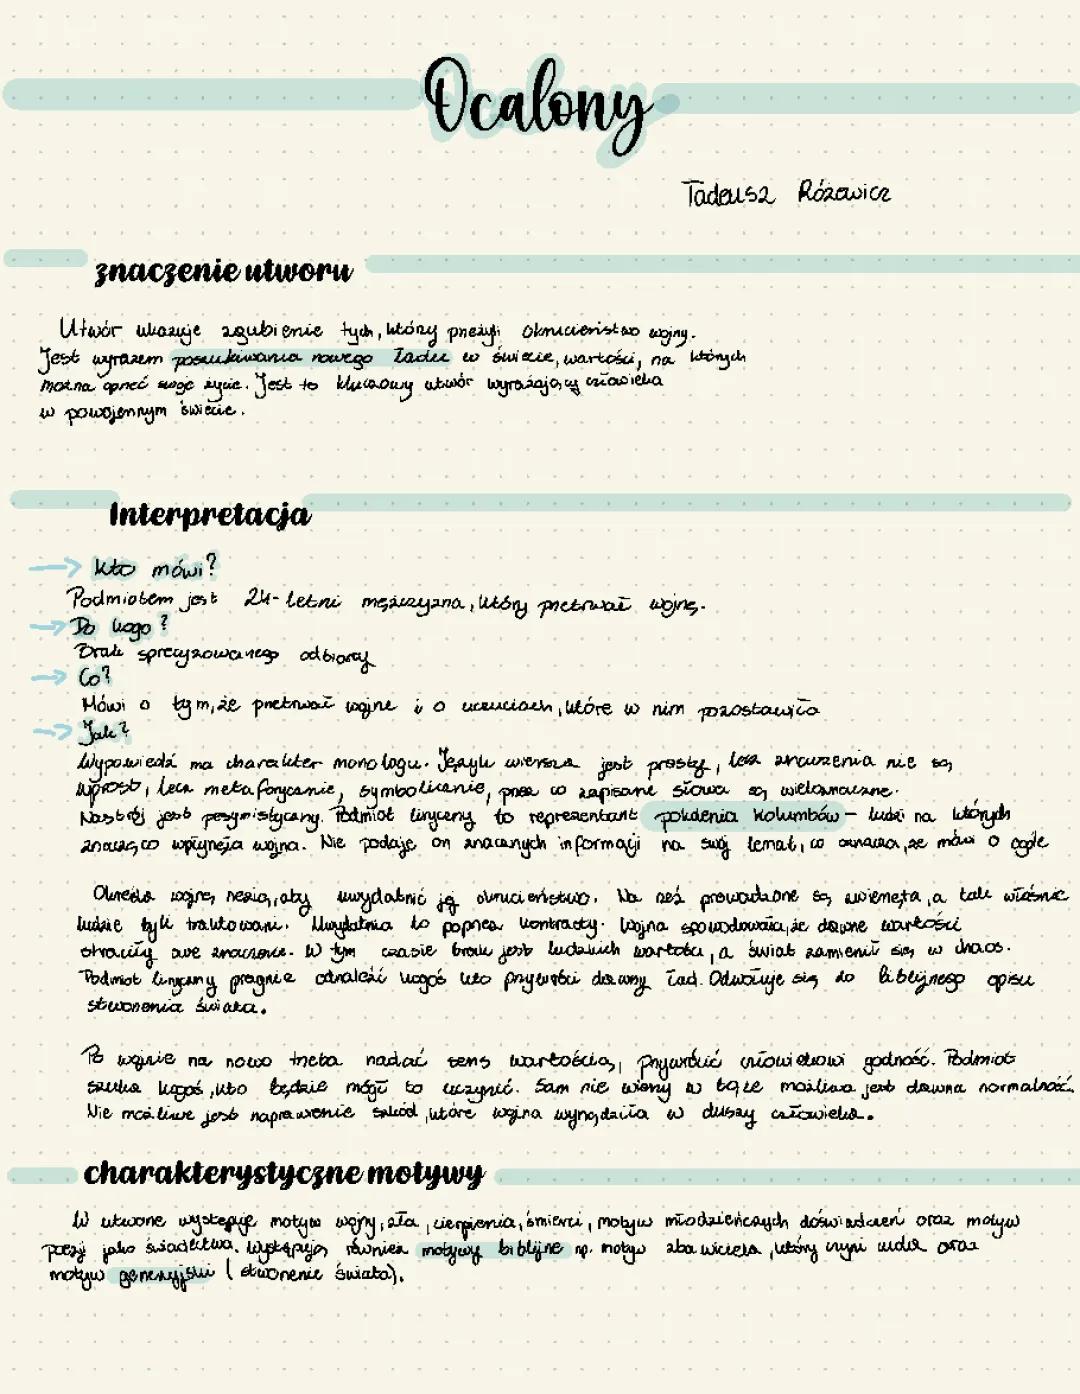 Ocalony
Tadeusz Różewicz
znaczenie utworu
Utwór ukazuje zgubienie tych, który przeżyli okrucieństwo wojny.
Jest wyrazem poszukiwania nowego ładu w świecie, wartości, na których
można oprzeć swoje życie. Jest to kluczowy utwór wyrażający człowieka
w powojennym świecie.
Interpretacja
→ kto mówi?
Podmiotem jest 24-letni mężczyzna, który przetrwał wojnę.
→ Do kogo?
Brak sprecyzowanego odbiorcy
→ Co?
Mówi o tym, że przetrwał wojnę i o uczuciach, które w nim pozostawiła
→ Jak?
Wypowiedź ma charakter monologu. Język wiersza jest prosty, lecz znaczenia nie są
wprost, lecz metaforycznie, symbolicznie, przez co zapisane słowa są wieloznaczne.
Nastrój jest pesymistyczny. Podmiot liryczny to reprezentant pokolenia Kolumbów – ludzi na których
znacząco wpłynęła wojna. Nie podaje on znacznych informacji na swój temat, co oznacza, że mówi o ogóle
Określa wojnę rzezią, aby uwydatnić jej okrucieństwo. Na rzeź prowadzone są zwierzęta, a tak właśnie
ludzie byli traktowani. Uwydatnia to poprzez kontrasty. Wojna spowodowała, że dawne wartości
straciły swe znaczenie. W tym czasie brak jest ludzkich wartości, a świat zamienił się w chaos.
Podmiot liryczny pragnie odnaleźć kogoś kto przywróci dawny ład. Odwołuje się do biblijnego opisu
stworzenia świata.
Po wojnie na nowo trzeba nadać sens wartością, przywrócić człowiekowi godność. Podmiot
szuka kogoś, kto będzie mógł to uczynić. Sam nie wierzy w to, że możliwa jest dawna normalność.
Nie możliwe jest naprawienie szkód, które wojna wyrządziła w duszy człowieka.
charakterystyczne motywy
W utworze występuje motyw wojny, zła, cierpienia, śmierci, motyw młodzieńczych doświadczeń oraz motyw
poezji jako świadectwa. Występują również motywy biblijne np. motyw zbawiciela, który czyni cuda oraz
motyw genezyjski (stworzenie świata).